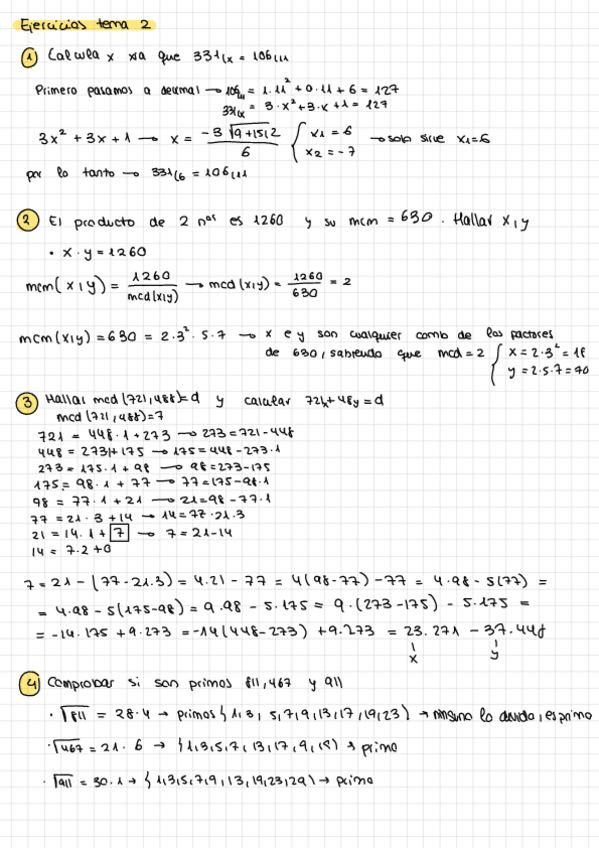 Ejercicios tema 2
1 Calcula x xa que 331(x = 106(11
Primero pasamos a decimal → 106(11 = 1.11² + 0.11 + 6 = 127
331(x = 3·x² + 3·x + 1 = 127
3x² + 3x + 1 → x = -3 √9+1512 / 6 { x1 = 6 x2 = -7 → solo sirve x1=6
por lo tanto → 331(6 = 106(11
2 El producto de 2 nos es 1260 y su mcm = 630. Hallar x,y
• x · y = 1260
mcm(x,y) = 1260 / mcd(x,y) → mcd(x,y) = 1260 / 630 = 2
mcm(x,y) = 630 = 2·3²·5·7 → x e y son cualquier comb de los factores
de 630, sabiendo que mcd = 2 { x = 2·3² = 18
y = 2·5·7 = 70
3 Hallar mcd(721,448)=d y calcular 721x+448y=d
mcd(721,448)=7
721 = 448·1+273 → 273=721-448
448 = 273·1+175 → 175=448-273·1
273 = 175·1+98 → 98=273-175
175 = 98·1+77 → 77=175-98·1
98 = 77·1+21 → 21=98-77·1
77 = 21·3+14 → 14=77·21·3
21 = 14·1+7 → 7=21-14
14 = 7·2+0
7 = 21-(77-21·3) = 4·21-77 = 4(98-77)-77 = 4·98-5(77) =
= 4·98-5(175-98) = 9·98-5·175 = 9·(273-175)-5·175 =
= -14·175+9·273 = -14(448-273)+9·273 = 23·271-37·448
x y
4 Comprobar si son primos 811, 467 y 911
· √811 = 28·4 → primos { 1,3, 5,7,9,13,17,19,23) → ninguno lo divide, es primo
· √467 = 21·6 → { 1,3,5,7,13,17,9,19) → primo
· √911 = 30·1 → { 1,3,5,7,9,13,19,23,29) → primo